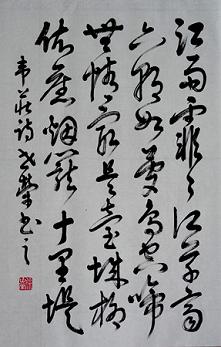 江雨霏〻江草齊
六朝如夢鳥空啼
無情最是臺城柳
依舊烟籠十里堤
韋莊詩 書之